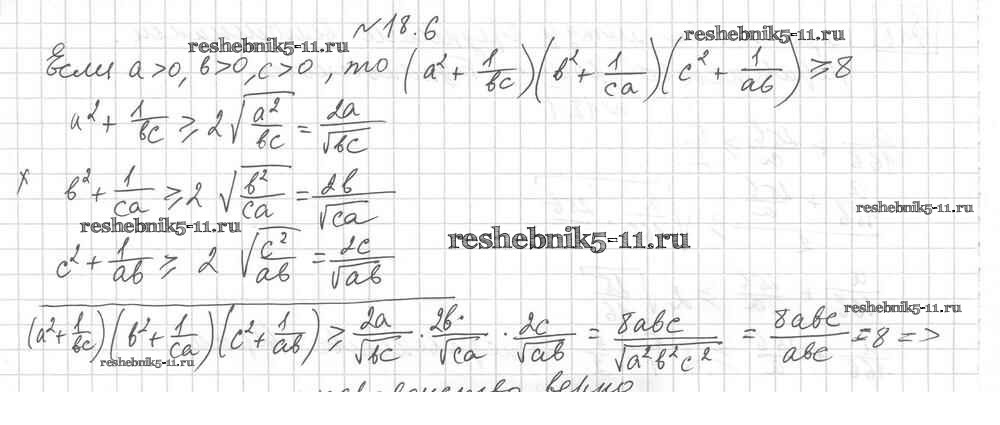 №18.6
reshebnik5-11.ru reshebnik5-11.ru
Если a>0, b>0, c>0, то (a² + 1/bc)(b² + 1/ca)(c² + 1/ab) ≥ 8
a² + 1/bc ≥ 2√(a²/bc) = 2a/√bc
x b² + 1/ca ≥ 2√(b²/ca) = 2b/√ca
reshebnik5-11.ru reshebnik5-11.ru
reshebnik5-11.ru
c² + 1/ab ≥ 2√(c²/ab) = 2c/√ab
reshebnik5-11.ru
(a² + 1/bc)(b² + 1/ca)(c² + 1/ab) ≥ 2a/√bc · 2b/√ca · 2c/√ab = 8abc/√a²b²c² = 8abc/abc = 8 =>
reshebnik5-11.ru
верно